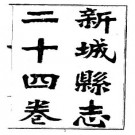 新城縣志
二十四卷